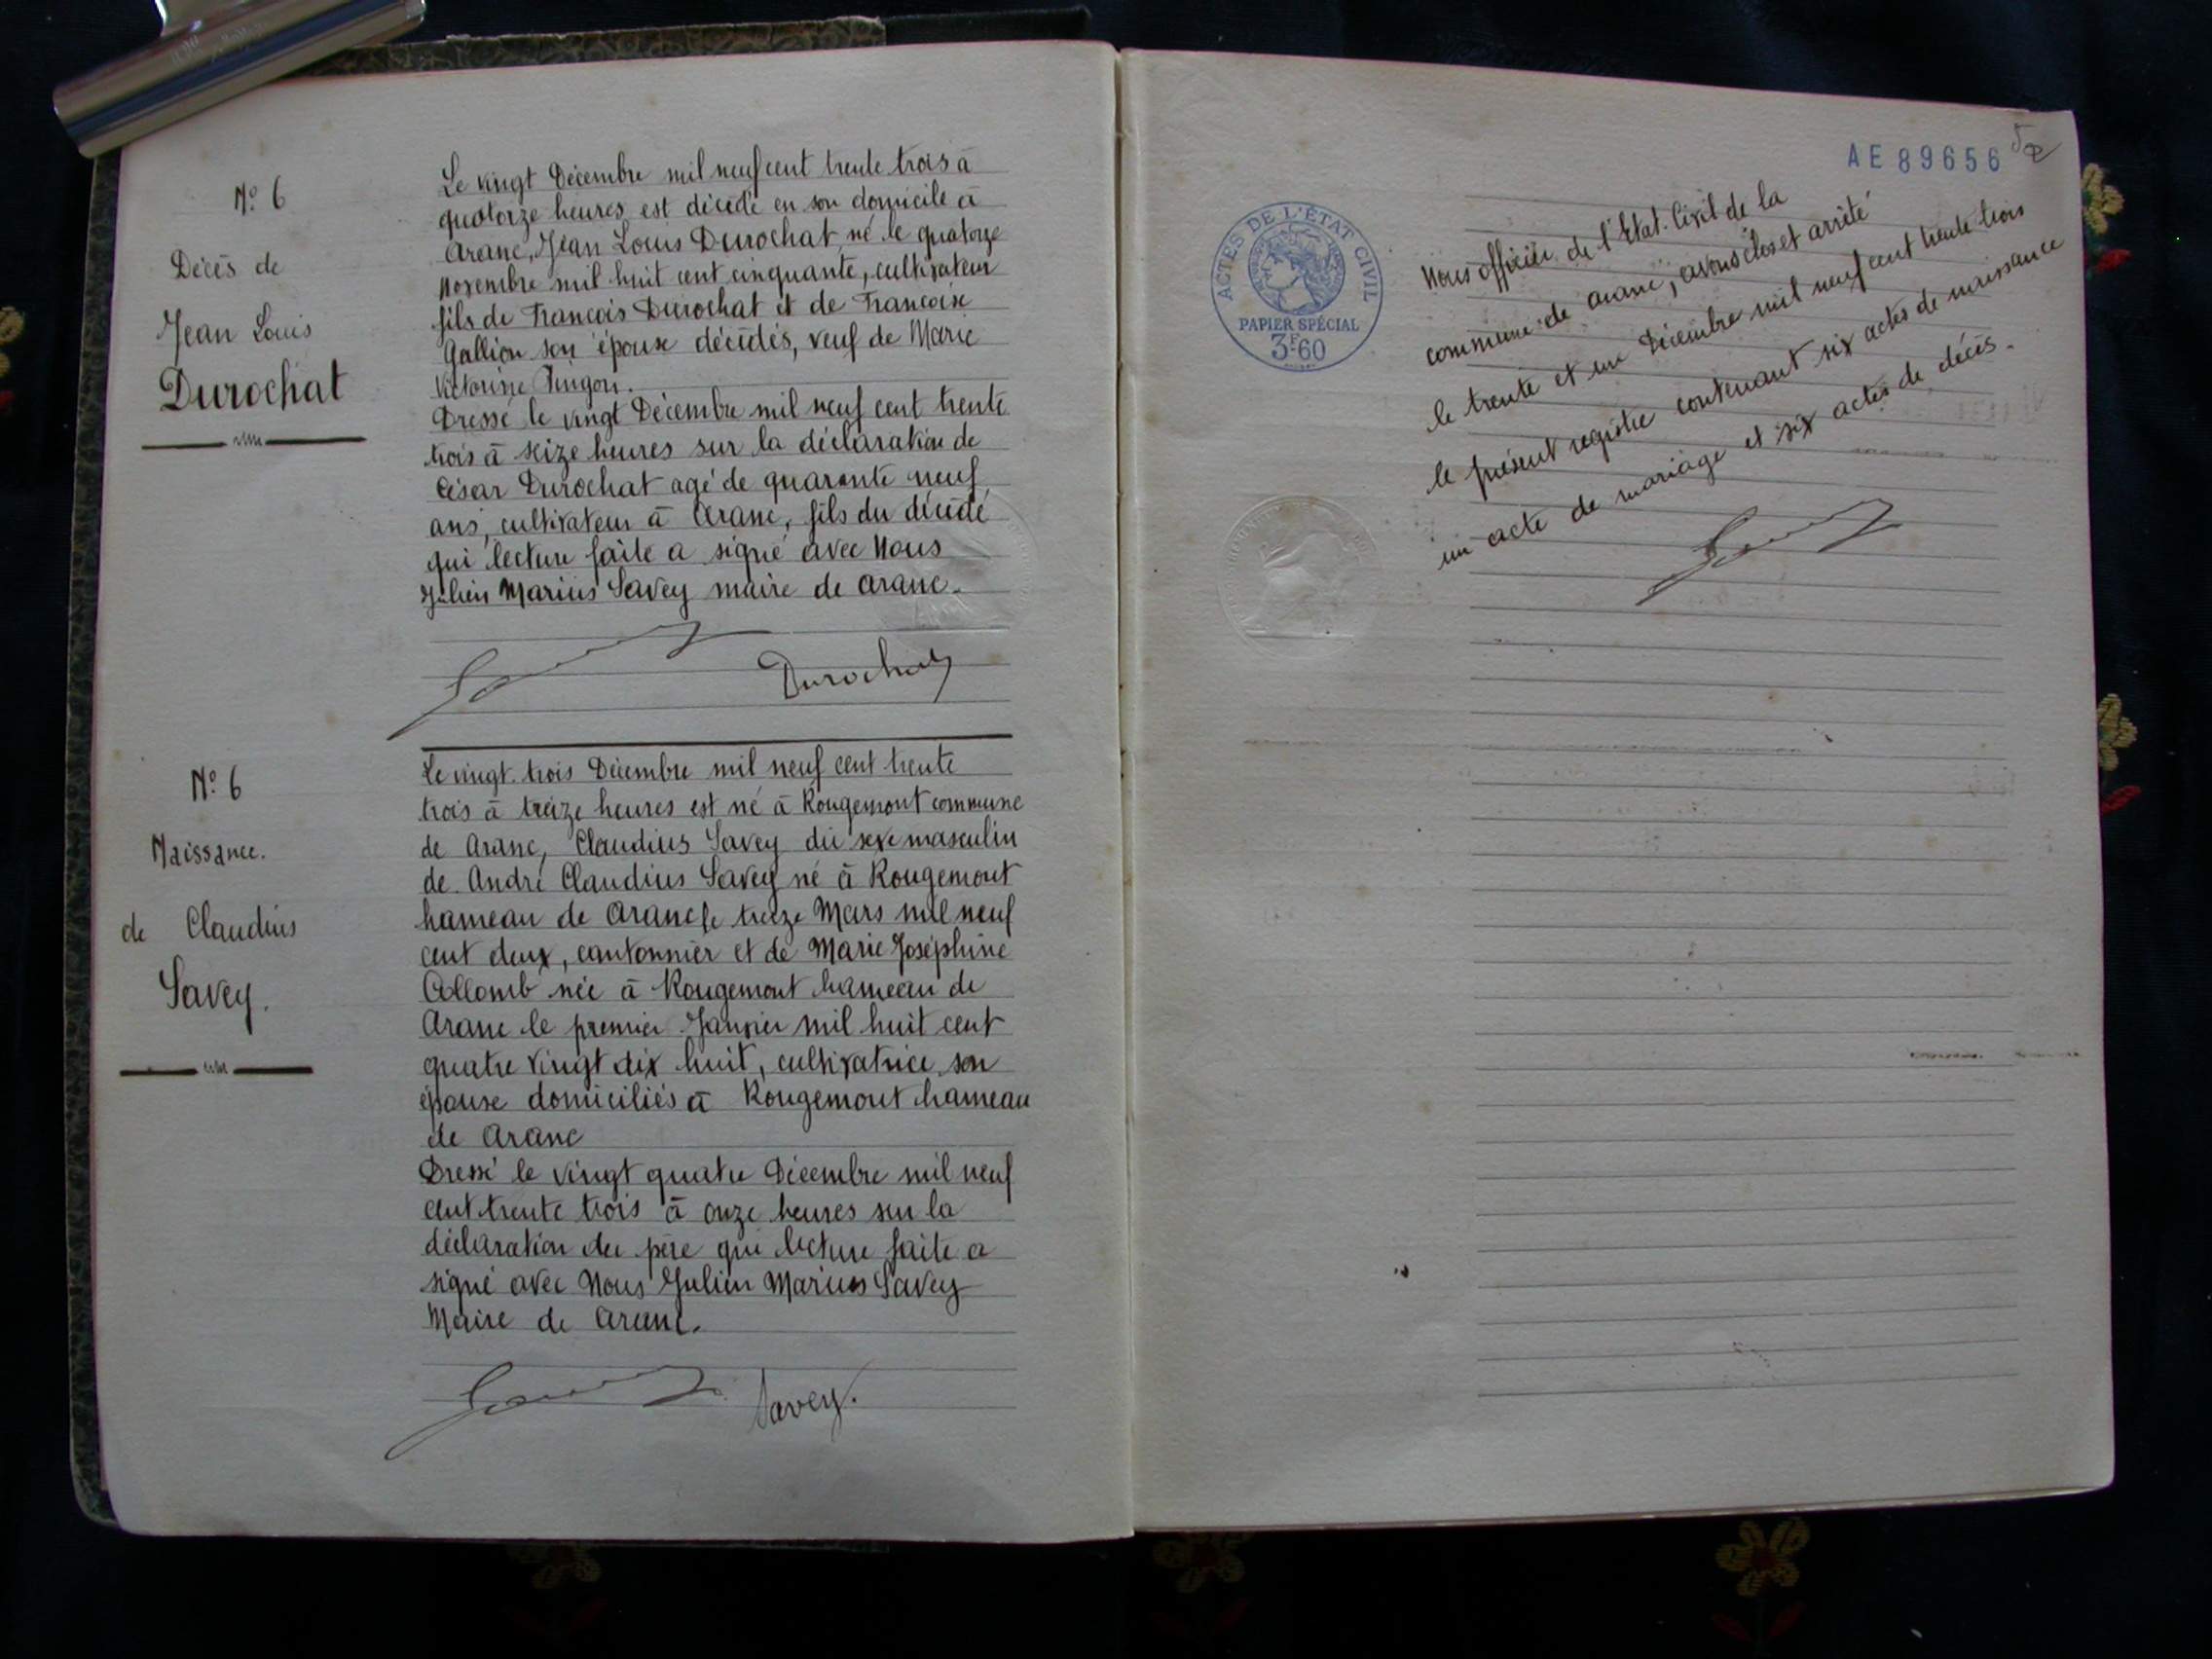 N° 6
Décès de
Jean Louis
Durochat
Le vingt Décembre mil neuf cent trente trois à
quatorze heures, est décédé en son domicile à
Aranc, Jean Louis Durochat, né le quatorze
novembre mil huit cent cinquante, cultivateur
fils de François Durochat et de Francoise
Gallion son épouse décédés, veuf de Marie
Victorine
Dressé le vingt Décembre mil neuf cent trente
trois à seize heures sur la déclaration de
César Durochat agé de quarante neuf
ans, cultivateur à Aranc, fils du décédé
qui lecture faite a signé avec Nous
Julien Marius Savey maire de Aranc.
Durochat
N° 6
Naissance.
de Claudius
Savey.
Le vingt-trois Décembre mil neuf cent trente
trois à treize heures est né à Rougemont commune
de Aranc, Claudius Savey du sexe masculin
de André Claudius Savey né à Rougemont
hameau de Aranc le treize Mars mil neuf
cent deux, cantonnier et de Marie Joséphine
Collomb née à Rougemont hameau de
Aranc le premier Janvier mil huit cent
quatre vingt dix huit, cultivatrice son
épouse domiciliés à Rougemont hameau
de Aranc
Dressé le vingt quatre Décembre mil neuf
cent trente trois à onze heures sur la
déclaration du père qui lecture faite a
signé avec Nous Julien Marius Savey
Maire de Aranc.
Savey.
AE 89656
ACTES DE L'ÉTAT CIVIL
PAPIER SPÉCIAL
3F60
Nous officier de l'Etat-Civil de la
commune de Aranc, avons clos et arrêté
le trente et un Décembre mil neuf cent trente trois
le présent registre contenant six actes de naissance
un acte de mariage et six actes de décès.